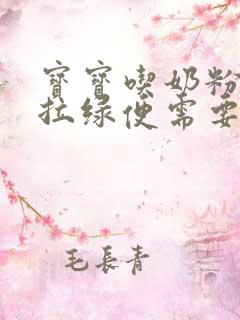 寶寶喫奶粉
拉綠便需要
毛長青